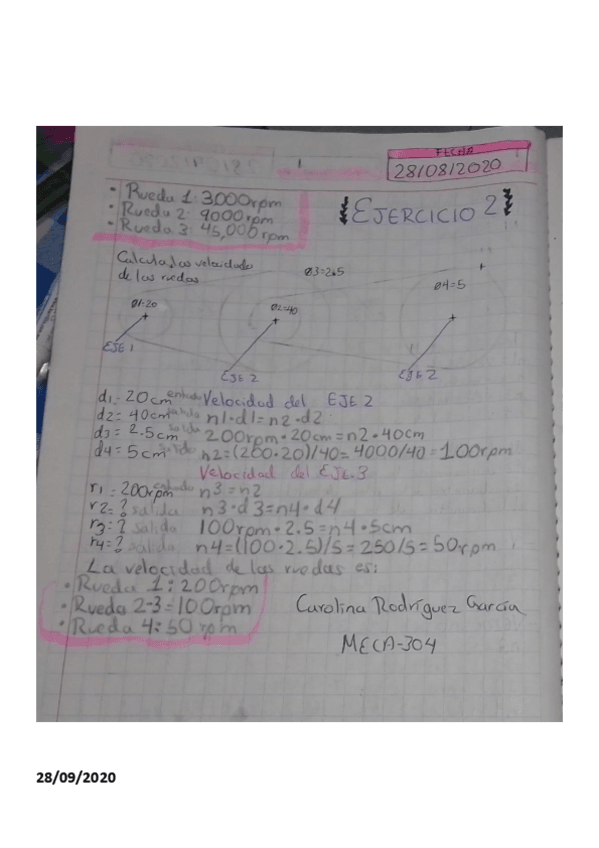 FECHA
28/08/2020
• Rueda 1: 3000rpm
• Rueda 2: 9000rpm
• Rueda 3: 45,000rpm
EJERCICIO 2
Calcula las velocidades
de las ruedas
Ø3=2.5
Ø4=5
Ø1=20
Ø2=40
EJE 1
EJE 2
EJE 2
d1= 20cm entrada Velocidad del EJE 2
d2= 40cm salida n1•d1=n2•d2
d3= 2.5cm salida 200rpm•20cm=n2•40cm
d4= 5cm salida n2=(200•20)/40=4000/40=100rpm
Velocidad del EJE.3
r1=200rpm entrada n3=n2
r2=? salida n3•d3=n4•d4
r3:? salida 100rpm•2.5=n4•5cm
r4=? salida n4=(100•2.5)/5=250/5=50rpm
La velocidad de las ruedas es:
• Rueda 1: 200rpm
• Rueda 2-3=100rpm
• Rueda 4: 50 rpm
Carolina Rodríguez García
MECA-304
28/09/2020